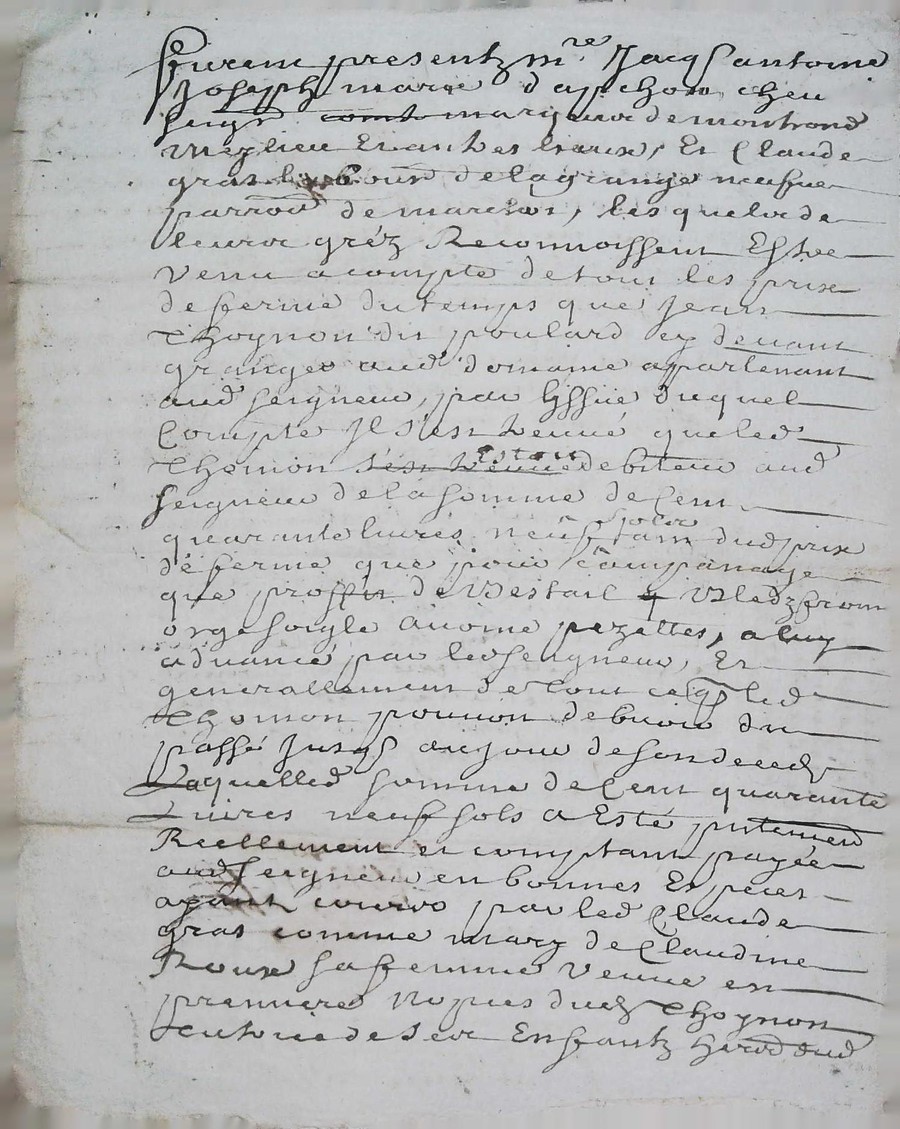 furent presentz mre Jacqs antoine
Joseph marie dapchon cheu
seigr comte marquis de montrond
Meylieu Et autres lieux, Et Claude
gras lab de la grange neufve
parroisse de marclop, lesquelx de
leurs gréz Reconnoissent Estre
venu a compte de tous les prix
de ferme du temps que jean
Thoynon dit poulard cy devant
granger aud domaine appartenant
aud seigneur, par lissüe duquel
Compte Il s'est treuvé que led
Thoinon s'est treuvé Estoit debiteur aud
seigneur de la somme de Cent
quarante livres neuf solz tant dud prix
de ferme que pour
que proffit de Bestail Bledz from
orge soigle avoine pezettes, a luy
advancé par led seigneur, Et
generallement de tout ce qs led
Thoinon pouvoit debvoir du
passé Jusqs au jour de son decedz
Laquelled somme de Cent quarante
Livres neuf sols a Esté pntement
Reellement et comptant payée
aud seigneur en bonnes Especes
ayant cours par led Claude
gras comme mary de Claudine
Roux sa femme veuve en
premiere Nopces dud Thoynon
tutrice de ses Enfantz dud